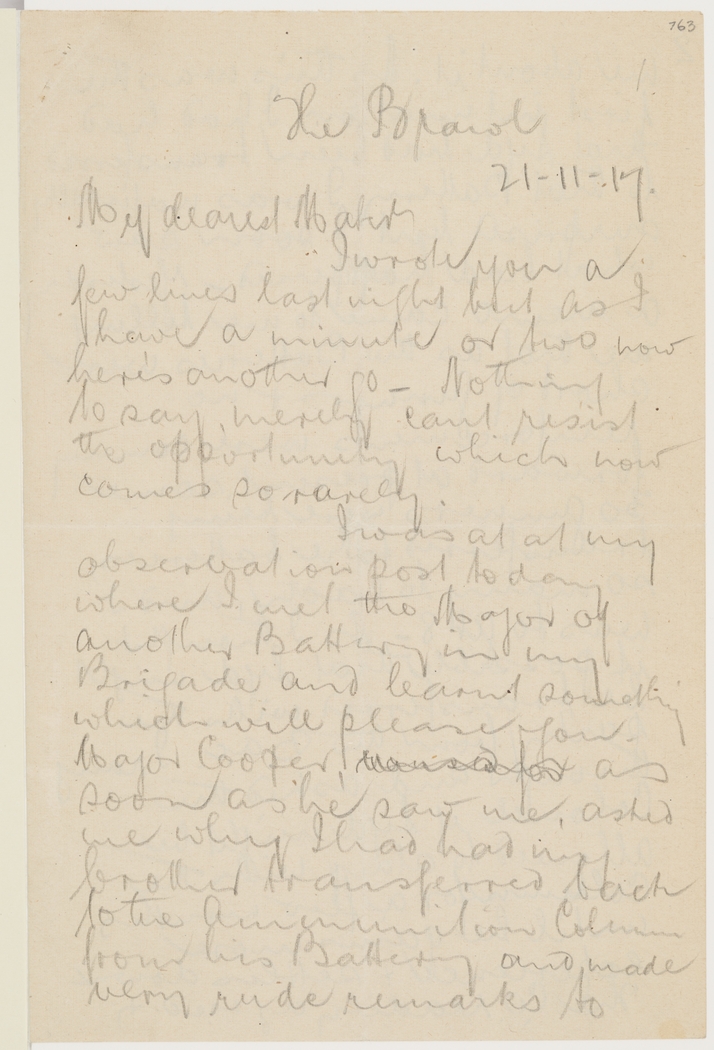 763
1.
The
21-11-17.
My dearest Mater
I wrote you a
few lines last night but as I
have a minute or two now
here's another go - Nothing
to say, merely cant resist
the opportunity which now
comes so rarely.
I was at at my
observation post today
where I met the Major of
another Battery in my
Brigade and learnt something
which will please you.
Major Cooper, as
soon as he saw me, asked
me why I had had my
brother transferred back
to the Ammunition Column
from his Battery and made
very rude remarks to